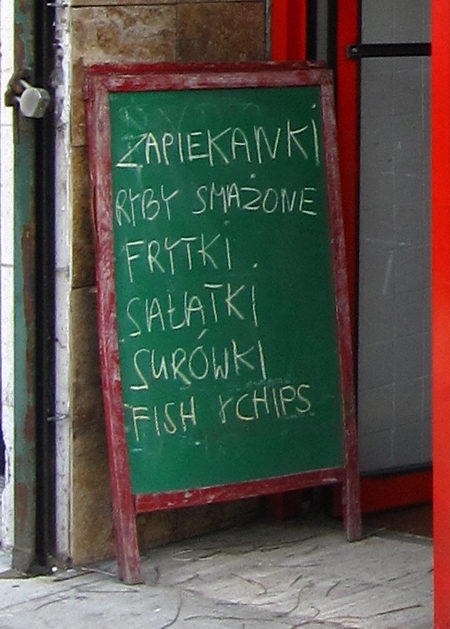 ZAPIEKANKI
RYBY SMAŻONE
FRYTKI
SAŁATKI
SURÓWKI
FISH & CHIPS